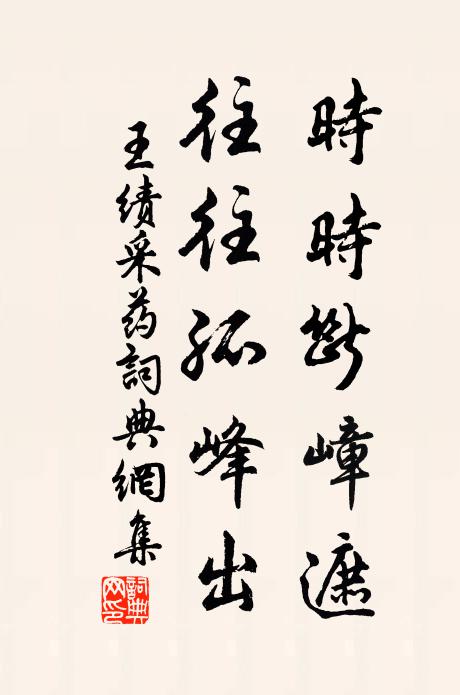 時時斷嶂遮
往往孤峰出
王績采药詞典網集
詞典网印